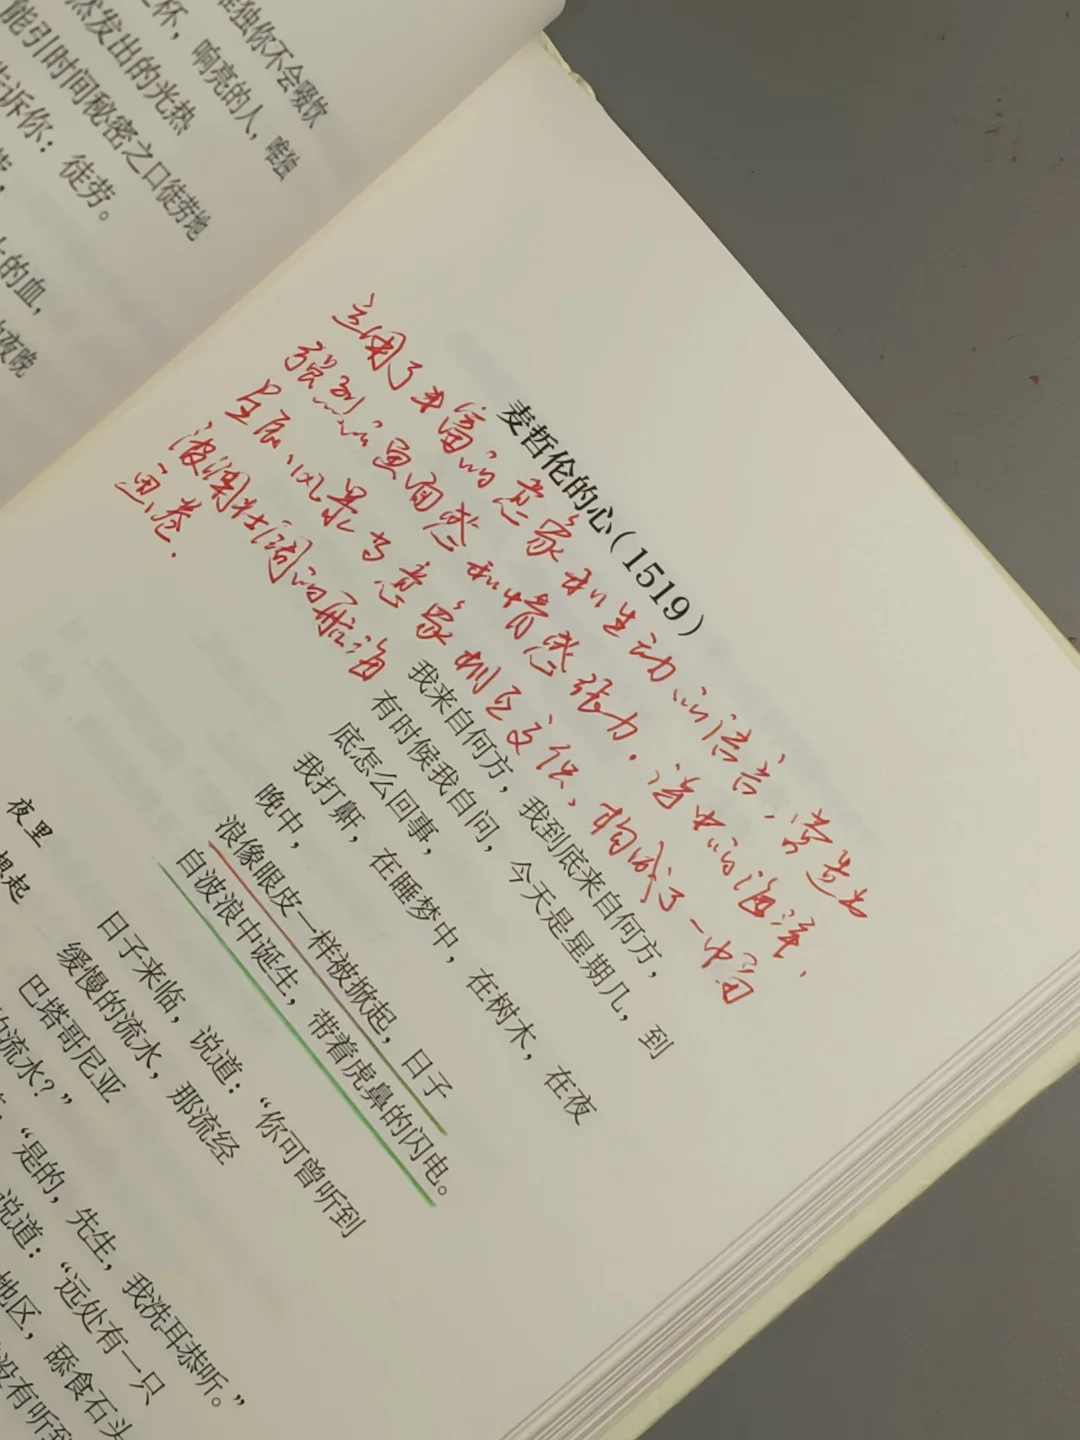 唯独你不会啜饮
杯，响亮的人，唯独
然发出的光热
能引时间秘密之口徒劳地
告诉你：徒劳。
的血，
夜晚
运用了丰富的意象和生动的语言，营造出
强烈的画面感和情感张力。诗中的海洋、
星辰、风景与意象相互交织，构成了一幅
波澜壮阔的航海
画卷。
麦哲伦的心（1519）
我来自何方，我到底来自何方，
有时候我自问，今天是星期几，到
底怎么回事，
我打鼾，在睡梦中，在树木，在夜
晚中，
浪像眼皮一样被掀起，日子
自波浪中诞生，带着虎鼻的闪电。
夜里
想起
日子来临，说道：“你可曾听到
缓慢的流水，那流经
巴塔哥尼亚
的流水？”
“是的，先生，我洗耳恭听。”
说道：“远处有一只
地区，舔食石头
没有听到